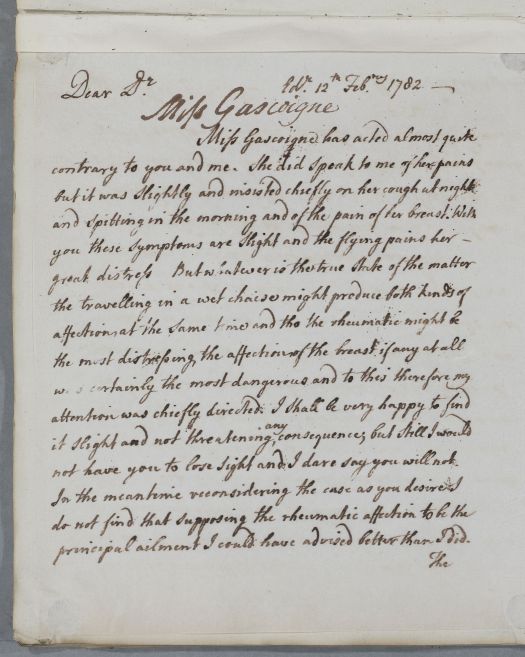 Dear Dr Edr. 12th Febry 1782 —
Miss Gascoigne
Miss Gascoigne has acted almost quite
contrary to you and me. She did speak to me of her pains
but it was slightly and insisted chiefly on her cough at night
and spitting in the morning and of the pain of her breast. With
you these symptoms are slight and the flying pains her –
great distress But whatever is the true state of the matter
the travelling in a wet chaise might produce both kinds of
affections at the same time and tho the rheumatic might be
the most distressing, the affection of the breast if any at all
was certainly the most dangerous and to this therefore my
attention was chiefly directed. I shall be very happy to find
it slight and not threatening any consequence, but still I would
not have you to lose sight and I dare say you will not.
In the meantime reconsidering the case as you desire I
do not find that supposing the rheumatic affection to be the
principal ailment I could have advised better than I did.
The